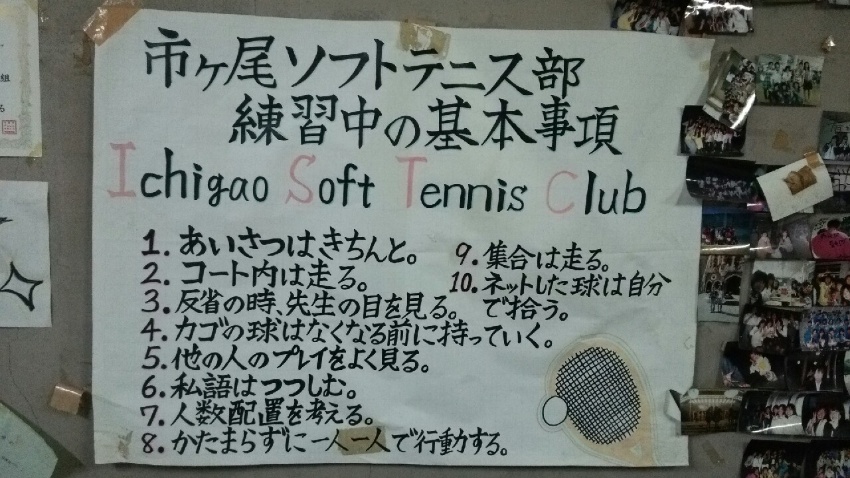 市ヶ尾ソフトテニス部
練習中の基本事項
Ichigao Soft Tennis Club
1. あいさつはきちんと。
2. コート内は走る。
3. 反省の時、先生の目を見る。
4. カゴの球はなくなる前に持っていく。
5. 他の人のプレイをよく見る。
6. 私語はつつしむ。
7. 人数配置を考える。
8. かたまらずに一人一人で行動する。
9. 集合は走る。
10. ネットした球は自分
で拾う。
組
る